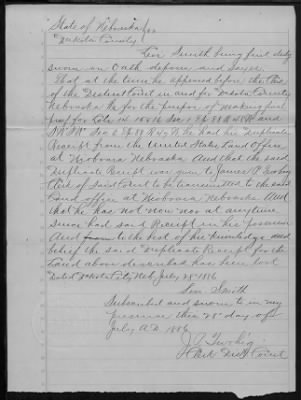 State of Nebraska } ss
Dakota County }
Levi Smith being first duly
sworn on oath deposes and says.
That at the time he appeared before the Clerk
of the District Court in and for Dakota County
Nebraska for the purpose of making final
proof for Lots Sec 1 Tp 88 R and
Sec 6 Tp 89 R he had his Duplicate
Receipt from the United States Land Office
at Niobrara Nebraska And that the said
Duplicate Receipt was given to James P. Twohig
Clerk of said Court to be transmitted to the said
Land office at Niobrara Nebraska And
that he has not now nor at anytime
since had said Receipt in his possession
And to the best of his knowledge and
belief the said Duplicate Receipt for the
Land above described has been lost
Dated Dakota City Neb July 28 1886
Levi Smith
Subscribed and sworn to in my
presence this 28 day of
July A.D. 1886
J P Twohig
Clerk Dist Court